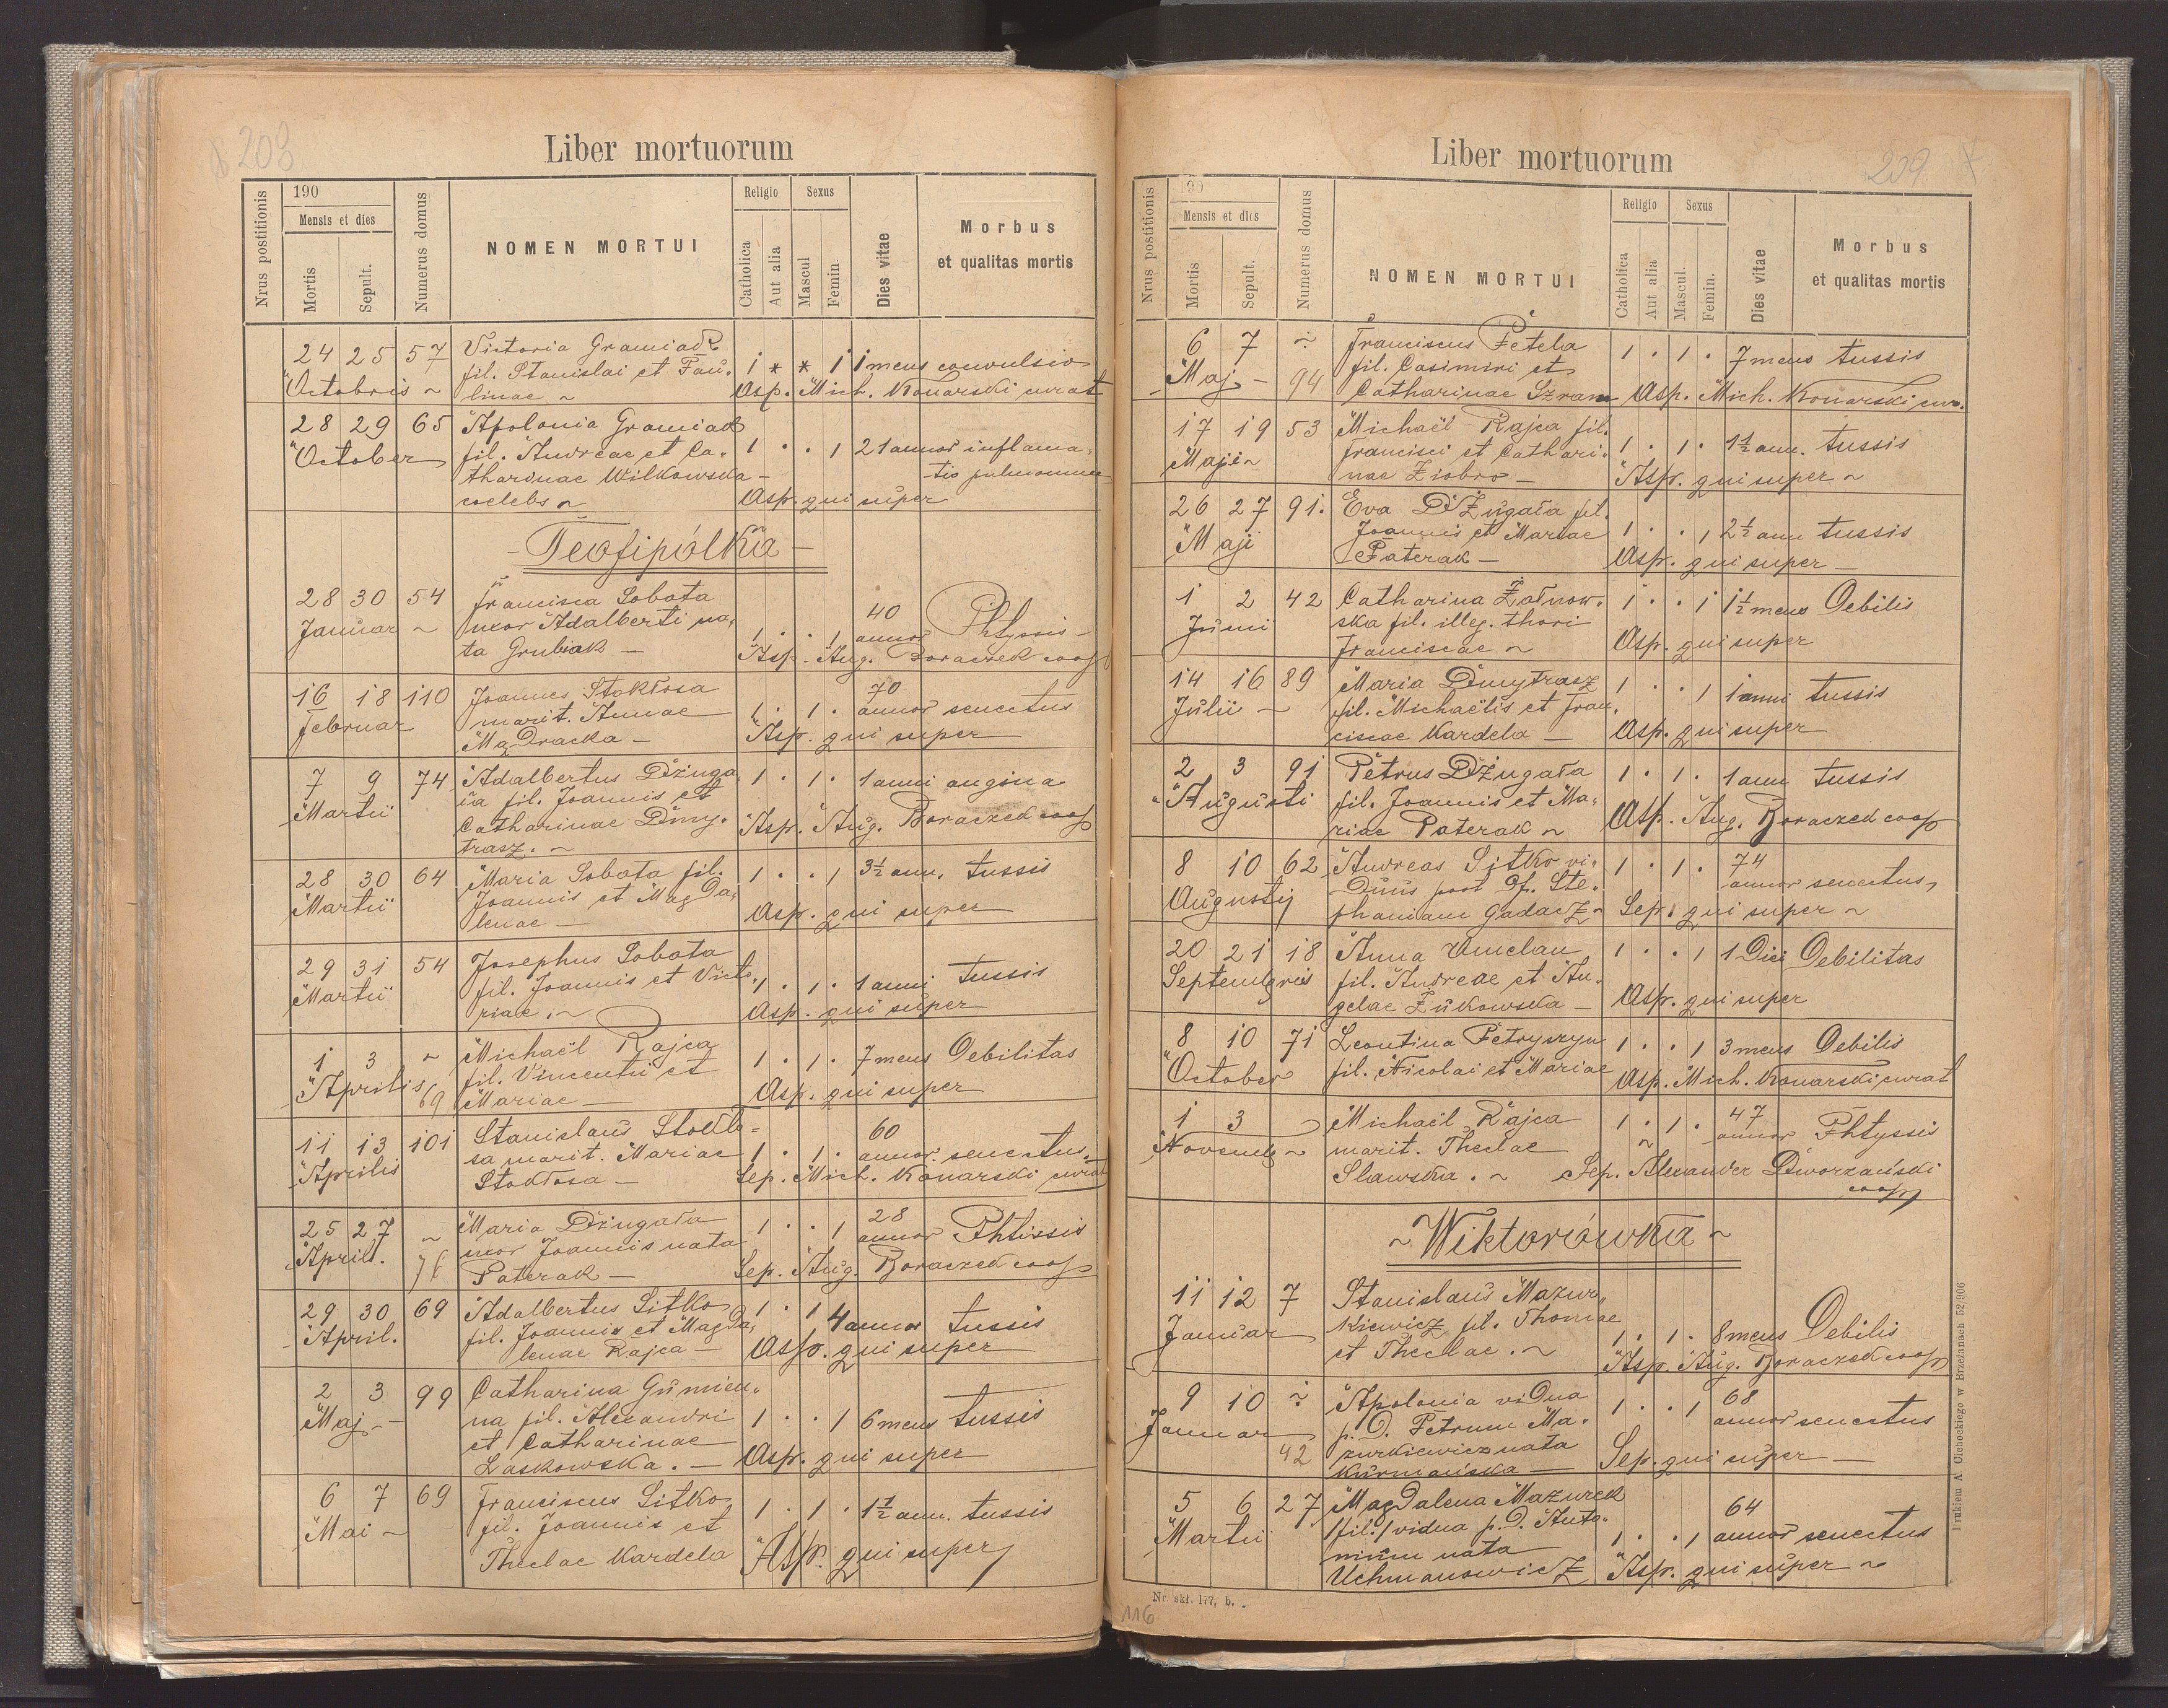 208
Liber mortuorum
Nrus postitionis
190
Mensis et dies
Mortis
Sepult.
Numerus domus
NOMEN MORTUI
Religio
Catholica
Aut alia
Sexus
Mascul
Femin.
Dies vitae
Morbus
et qualitas mortis
24 25 57 Victoria Gramiak
fil. Stanislai et Pau. 1 * * 1 1 mens convulsio
Octobris ~ linae ~ Asp. Mich. Konarski curat
28 29 65 Apolonia Gramiak
October fil. Andreae et Ca. 1 . . 1 21 annor inflama.
tharinae Wilkowska - tio pulmonum
coelebs ~ Asp. qui super
- Teofipólka -
28 30 54 Francisca Sobota 40
Januar ~ uxor Adalberti na, 1 . . 1 annor Phtyssis -
ta Grubiak - Asp. Aug. Boraczek coop
16 18 110 Joannes Stokłosa 70
Februar marit. Annae 1 . 1 . annor senectus
Mądracka - Asp. qui super
7 9 74 Adalbertus Dżuga 1 . 1 . 1 anni angina
Martii ła fil. Joannis et
Catharinae Dmy. Asp. Aug. Boraczek coop
trasz. ~
28 30 64 Maria Sobota fil. 1 . . 1 3½ ann. tussis
Martii Joannis et Magda,
lenae - Asp. qui super
29 31 54 Josephus Sobota
Martii fil. Joannis et Victo, 1 . 1 . 1 anni tussis
riae. ~ Asp. qui super
1 3 ~ Michaël Rajca 1 . 1 . 7 mens Debilitas
Aprilis 69 fil. Vincentii et
Mariae - Asp. qui super
11 13 101 Stanislaus Stokło - 60
Aprilis sa marit. Mariae 1 . 1 . annor. senectus.
Stokłosa - Sep. Mich. Konarski curat
25 27 ~ Maria Dżugała 1 . . 1 28
April. uxor Joannis nata annor Phtissis
Paterak - Sep. Aug. Boraczek coop
29 30 69 Adalbertus Sitko 1 . 1 4 annor tussis
April. fil. Joannis et Magda,
lenae Rajca - Asp. qui super
2 3 99 Catharina Gumien.
Maj - na fil. Alexandri 1 . . 1 6 mens tussis
et Catharinae
Laskowska. - Asp. qui super
6 7 69 Franciscus Sitko 1 . 1 . 1½ ann. tussis
Mai ~ fil. Joannis et
Theclae Kardela Asp. qui super
209
Liber mortuorum
Nrus postitionis
190
Mensis et dies
Mortis
Sepult.
Numerus domus
NOMEN MORTUI
Religio
Catholica
Aut alia
Sexus
Mascul.
Femin.
Dies vitae
Morbus
et qualitas mortis
6 7 ~ Franciscus Petela 1 . 1 . 7 mens tussis
Maj - 94 fil. Casimiri et
Catharinae Szram Asp. Mich. Konarski cur.
17 19 53 Michaël Rajca fil.
Maji ~ Francisci et Cathari. 1 . 1 . 1½ ann. tussis
nae Ziobro - Asp. qui super ~
26 27 91. Eva Dżugała fil.
Maji Joannis et Mariae 1 . . 1 2½ ann tussis
Paterak - Asp. qui super -
1 2 42 Catharina Żołnow. 1 . . 1 1½ mens Debilis
Junii ska fil. illeg. thori
Franciscae ~ Asp. qui super
14 16 89 Maria Dmytrasz 1 . . 1 1 anni tussis
Julii - fil. Michaëlis et Fran,
ciscae Kardela - Asp. qui super
2 3 91 Petrus Dżugała 1 . 1 . 1 ann tussis
Augusti fil. Joannis et Ma,
riae Paterak ~ Asp. Aug. Boraczek coop
8 10 62 Andreas Sitko vi. 1 . 1 . 74
Augusty duus post Df. Ste. annor senectus,
phaniam Gadacz ~ Sep. qui super ~
20 21 18 Anna Umclan 1 . . 1 1 Diei Debilitas
Septembris fil. Andreae et An.
gelae Żukowska - Asp. qui super
8 10 71 Leontina Petryszyn 1 . . 1 3 mens Debilis
October fil. Nicolai et Mariae Asp. Mich. Konarski curat
1 3 Michaël Rajca 1 . 1 . 47
Novemb ~ marit. Theclae annor Phtyssis
Slawska. ~ Sep. Alexander Dworzański
coop
~ Wiktorówka ~
11 12 7 Stanislaus Mazur,
Januar kiewicz fil. Thomae 1 . 1 . 8 mens Debilis
et Theclae. ~ Asp. Aug. Boraczek coop
9 10 ~ Apolonia vidua 1 . . 1 68
Januar p. D. Petrum Ma. annor senectus
42 zurkiewicz nata
Kurmańska - Sep. qui super -
5 6 27 Magdalena Mazurek 64
Martii /fil./ vidua p. D. Anto. 1 . . 1 annor senectus
nium nata
Uchmanowicz Asp. qui super ~
Nr. skł. 177, b.
116
Drukiem A. Cichockiego w Brzeżanach 52/906